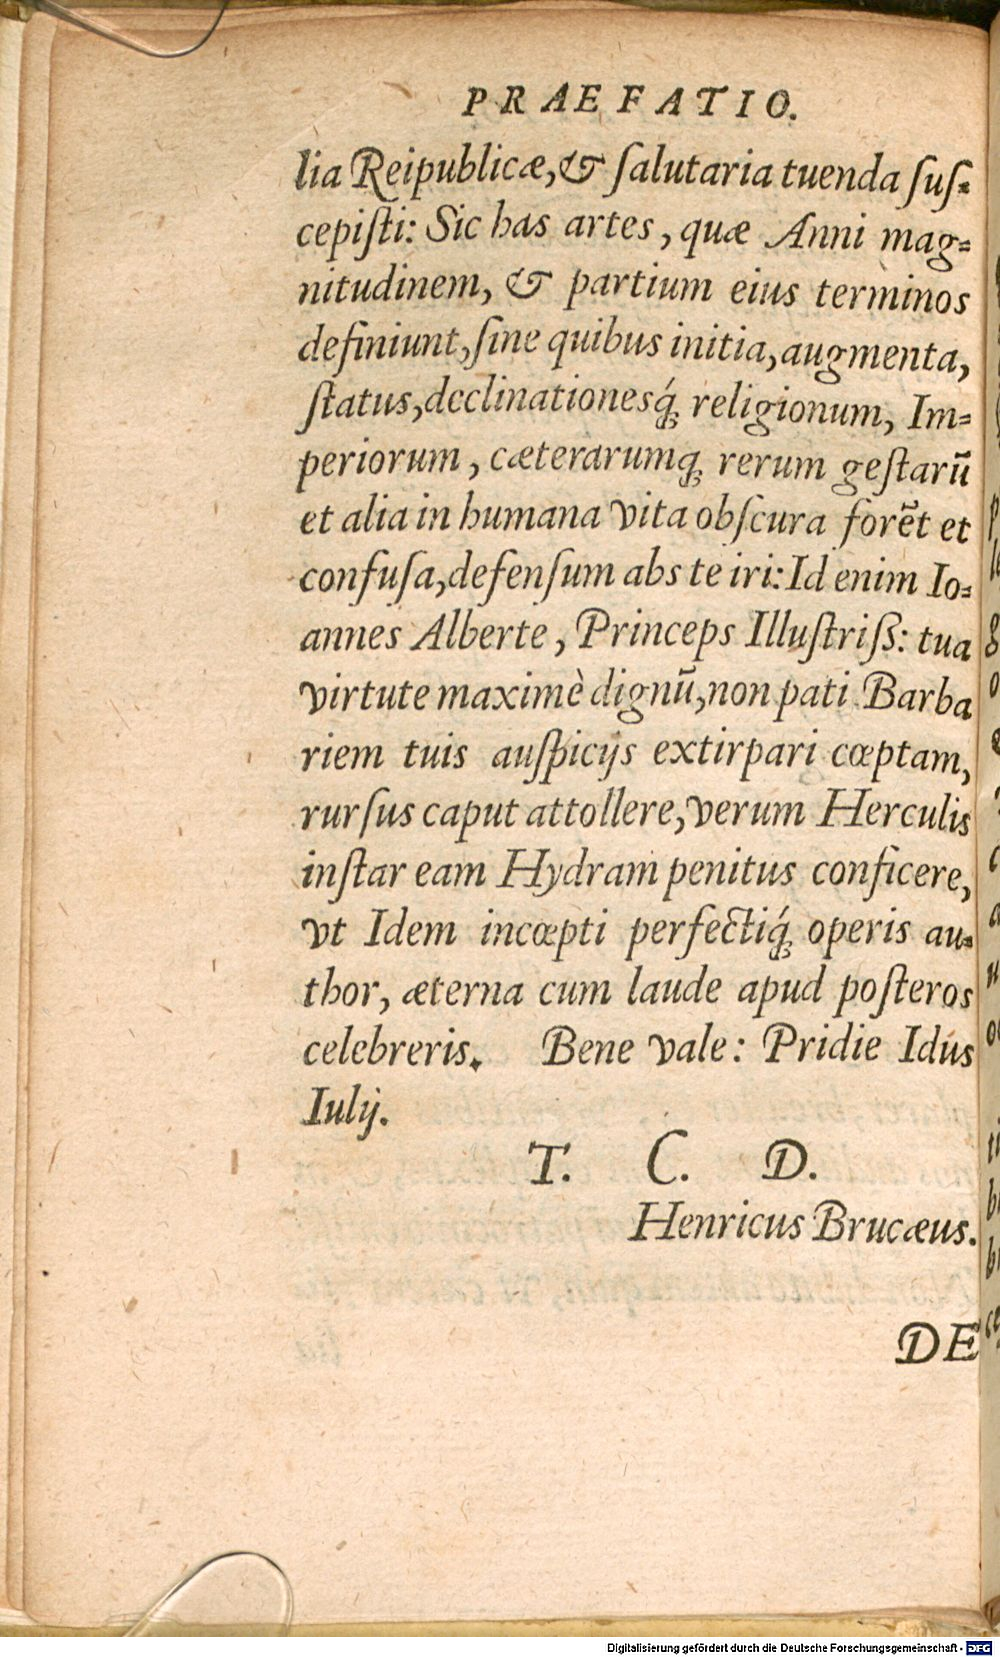 PRAEFATIO.
lia Reipublicæ, & ſalutaria tuenda ſuſ=
cepiſti: Sic has artes, quæ Anni mag=
nitudinem, & partium eius terminos
definiunt, ſine quibus initia, augmenta,
ſtatus, declinationesq́; religionum, Im=
periorum, cæterarumq; rerum geſtarū
et alia in humana vita obſcura forēt et
confuſa, defenſum abs te iri: Id enim Io=
annes Alberte, Princeps Illuſtriß: tua
virtute maximè dignū, non pati Barba
riem tuis auſpicijs extirpari cœptam,
rurſus caput attollere, verum Herculis
inſtar eam Hydram penitus conficere,
vt Idem incœpti perfectiq́; operis au=
thor, æterna cum laude apud poſteros
celebreris. Bene vale: Pridie Idus
Iulij.
T. C. D.
Henricus Brucæus.
DE
Digitalisierung gefördert durch die Deutsche Forschungsgemeinschaft - DFG